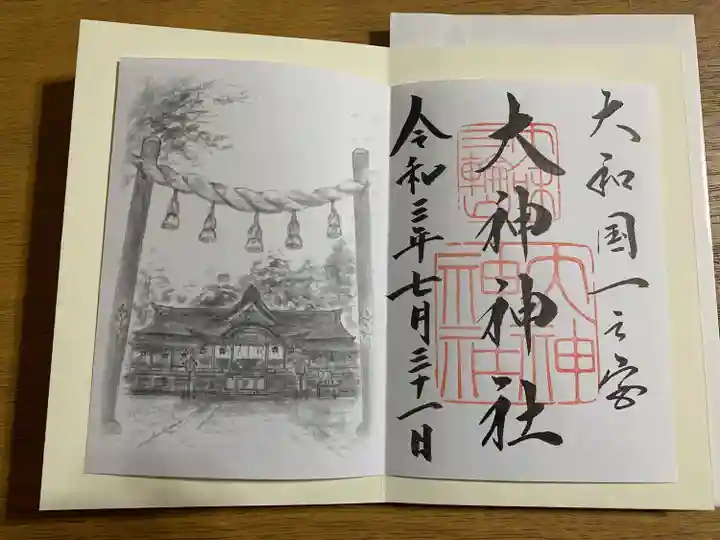 大和国一之宮
大神神社
令和三年七月三十一日
三輪
大神
神社